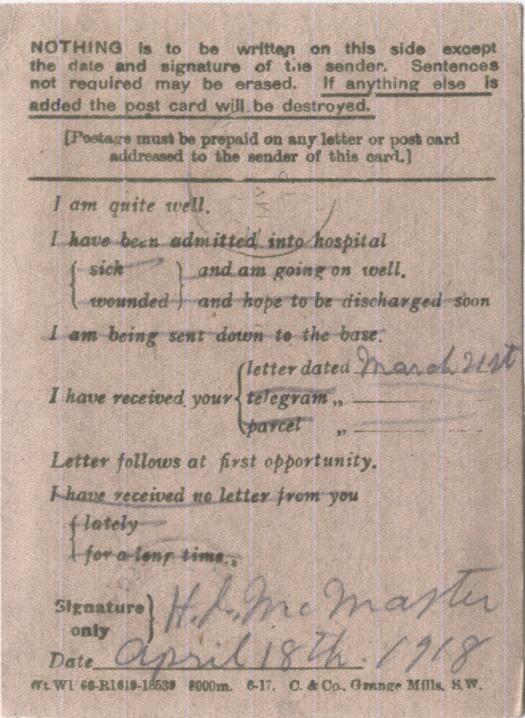 NOTHING is to be written on this side except
the date and signature of the sender. Sentences
not required may be erased. If anything else is
added the post card will be destroyed.
[Postage must be prepaid on any letter or post card
addressed to the sender of this card.]
I am quite well.
I have been admitted into hospital
{ sick } and am going on well.
{ wounded } and hope to be discharged soon
I am being sent down to the base.
I have received your { letter dated March 21st
telegram „
parcel „
Letter follows at first opportunity.
I have received no letter from you
{ lately
for a long time.
Signature only } H. L. McMaster
Date April 18th. 1918
Wt. W1 66-R1619-18539 8000m. 6-17. C. & Co., Grange Mills, S.W.